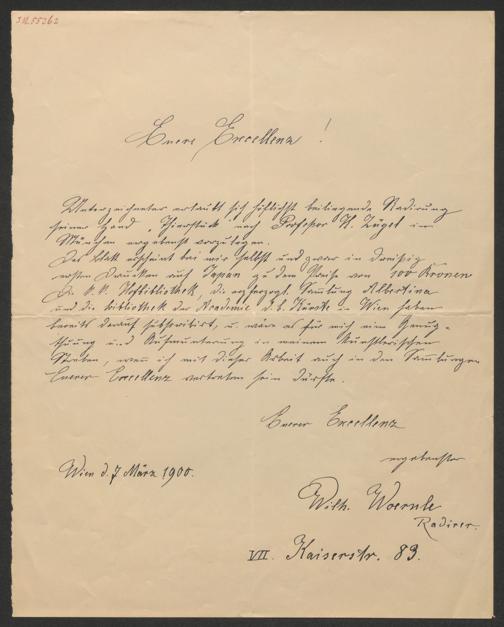 J.N. 55262
Euere Excellenz!
Unterzeichneter erlaubt sich höflichst beiliegende Radirung
seiner Hand „Thierstück" nach Professor H. Zügel in
München ergebenst vorzulegen.
Das Blatt erscheint bei mir selbst und zwar in dreißig
ersten Drucken auf Japan zu dem Preise von 100 Kronen
Die k.k. Hofbibliothek, die erzherzogl. Samlung Albertina
und die Bibliothek der Academie d. b. Künste in Wien haben
bereits darauf subscribirt, u. wäre es für mich eine Genug-
thuung und Aufmunterung in meinem künstlerischen
Streben, wenn ich mit dieser Arbeit auch in den Samlungen
Euerer Excellenz vertreten sein dürfte.
Euerer Excellenz
ergebenster
Wien d. 7 März 1900.
Wilh. Woernle
Radirer.
VII. Kaiserstr. 83.